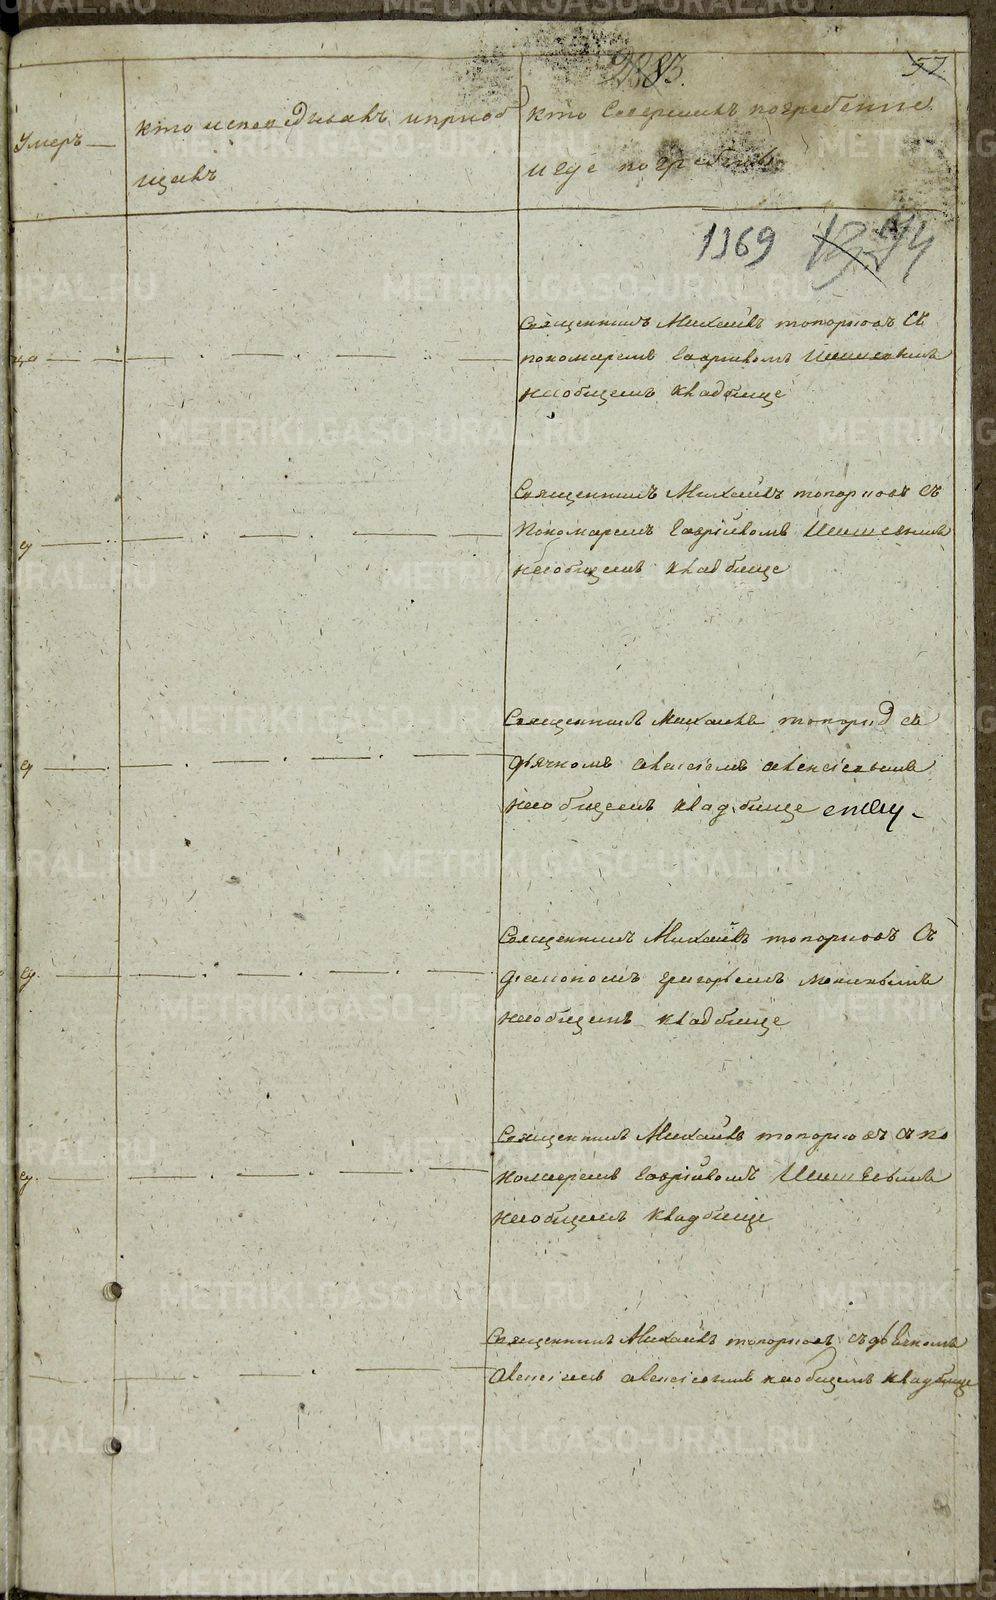 2883.
57
Умеръ
кто исповѣдывалъ и приоб
щалъ
кто Совершилъ погребение
и где погребенъ
1369
Священникъ Михаилъ топорковъ Съ
пономаремъ Гавриломъ
на общемъ кладбище
Священникъ Михаилъ топорковъ Съ
Пономаремъ Гавриломъ
на общемъ кладбище
Священникъ Михаилъ съ
дьячкомъ алексiемъ алексiевымъ
на общемъ кладбище
Священникъ Михаилъ топорковъ Съ
дiакономъ григорьемъ
на общемъ кладбище
Священникъ Михаилъ топорковъ Съ по
номаремъ Гавриломъ
на общемъ кладбище
Священникъ Михаилъ топорковъ съ дьячкомъ
алексiемъ алексiевымъ на общемъ кладбище
METRIKI.GASO-URAL.RU